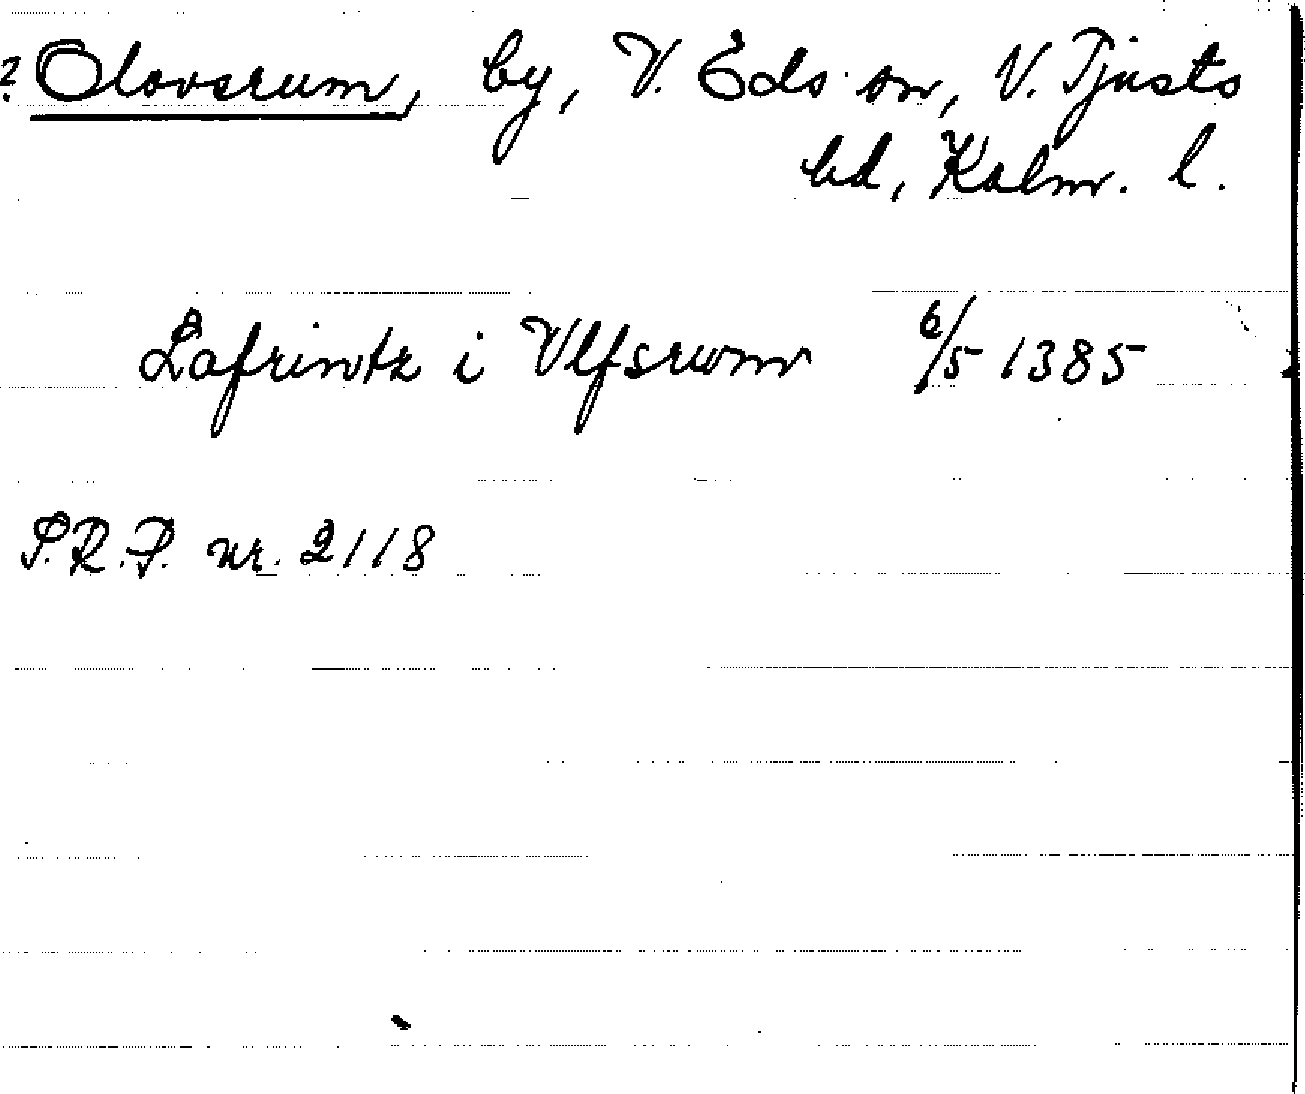 ? Olovsrum, by, V. Eds sn, V. Tjusts
hd, Kalm. l.
Lafrintz i Vlfsrwm 6/5 1385
S.R.P. nr. 2118